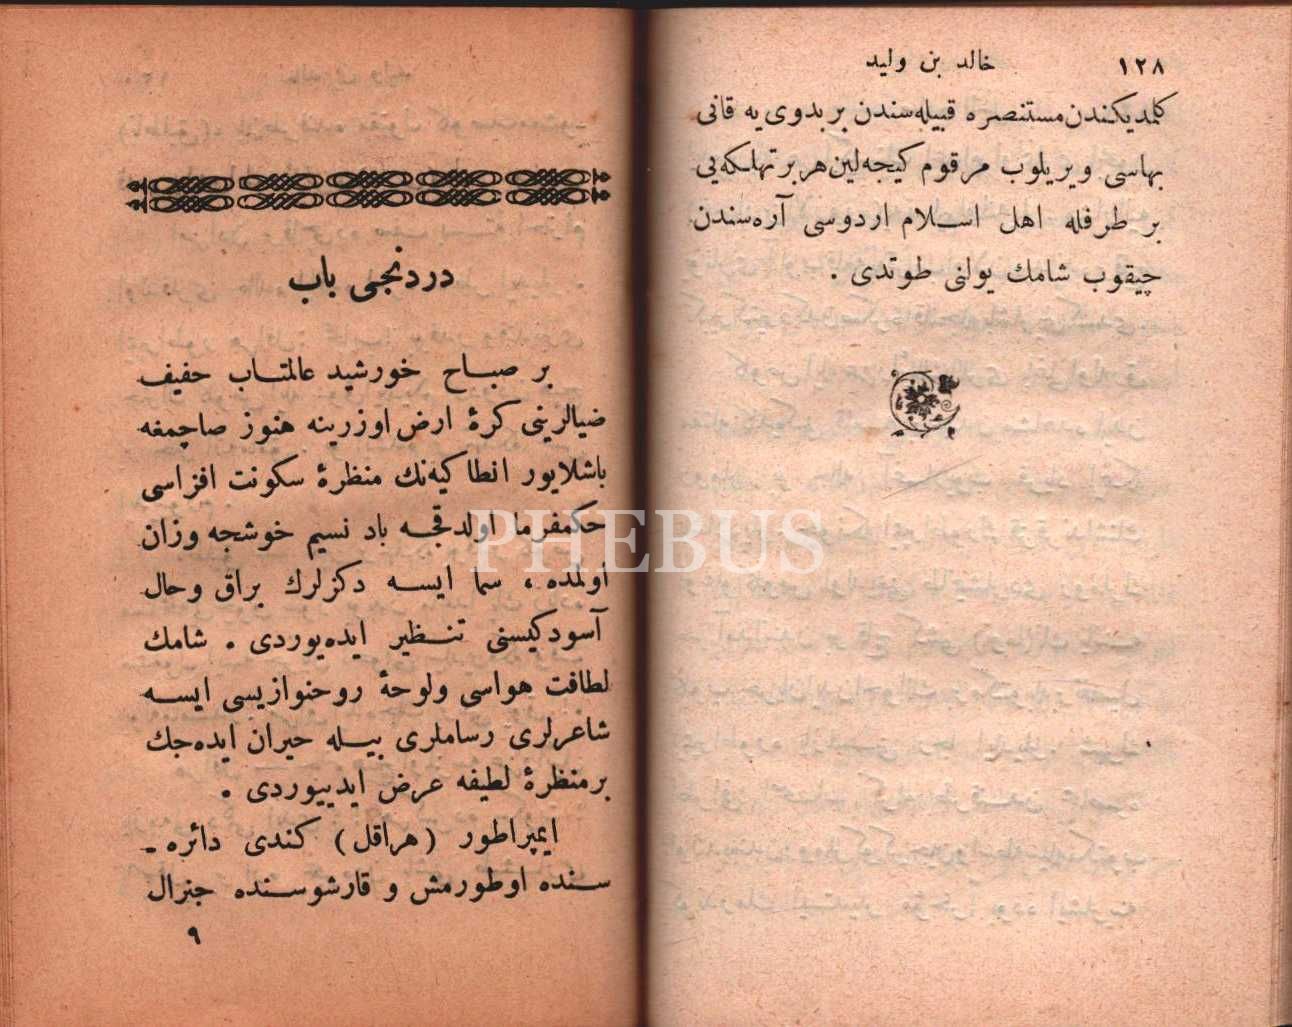 ١٢٨
خالد بن وليد
كلمديكندن مستنصره قبيله‌سندن بر بدوى يه قانى
بهاسى ويريلوب مرقوم كيجه‌لين هر بر تهلكه‌يى
بر طرفله اهل اسلام اردوسى آره‌سندن
چيقوب شامك يولنى طوتدى .
دردنجى باب
بر صباح خورشيد عالمتاب حفيف
ضيالرينى كرۀ ارض اوزرينه هنوز صاچمغه
باشلايور انطاكيه‌نك منظرۀ سكونت افزاسى
حكمفرما اولدقجه باد نسيم خوشجه وزان
اولمده ، سما ايسه دكزلرك براق وحال
آسودكيسنى تنظير ايده‌يوردى . شامك
لطافت هواسى ولوحۀ روحنوازيسى ايسه
شاعرلرى رساملرى بيله حيران ايده‌جك
برمنظرۀ لطيفه عرض ايدييوردى .
ايمپراطور (هراقل) كندى دائره ـ
سنده اوطورمش و قارشوسنده جنرال
٩
PHEBUS